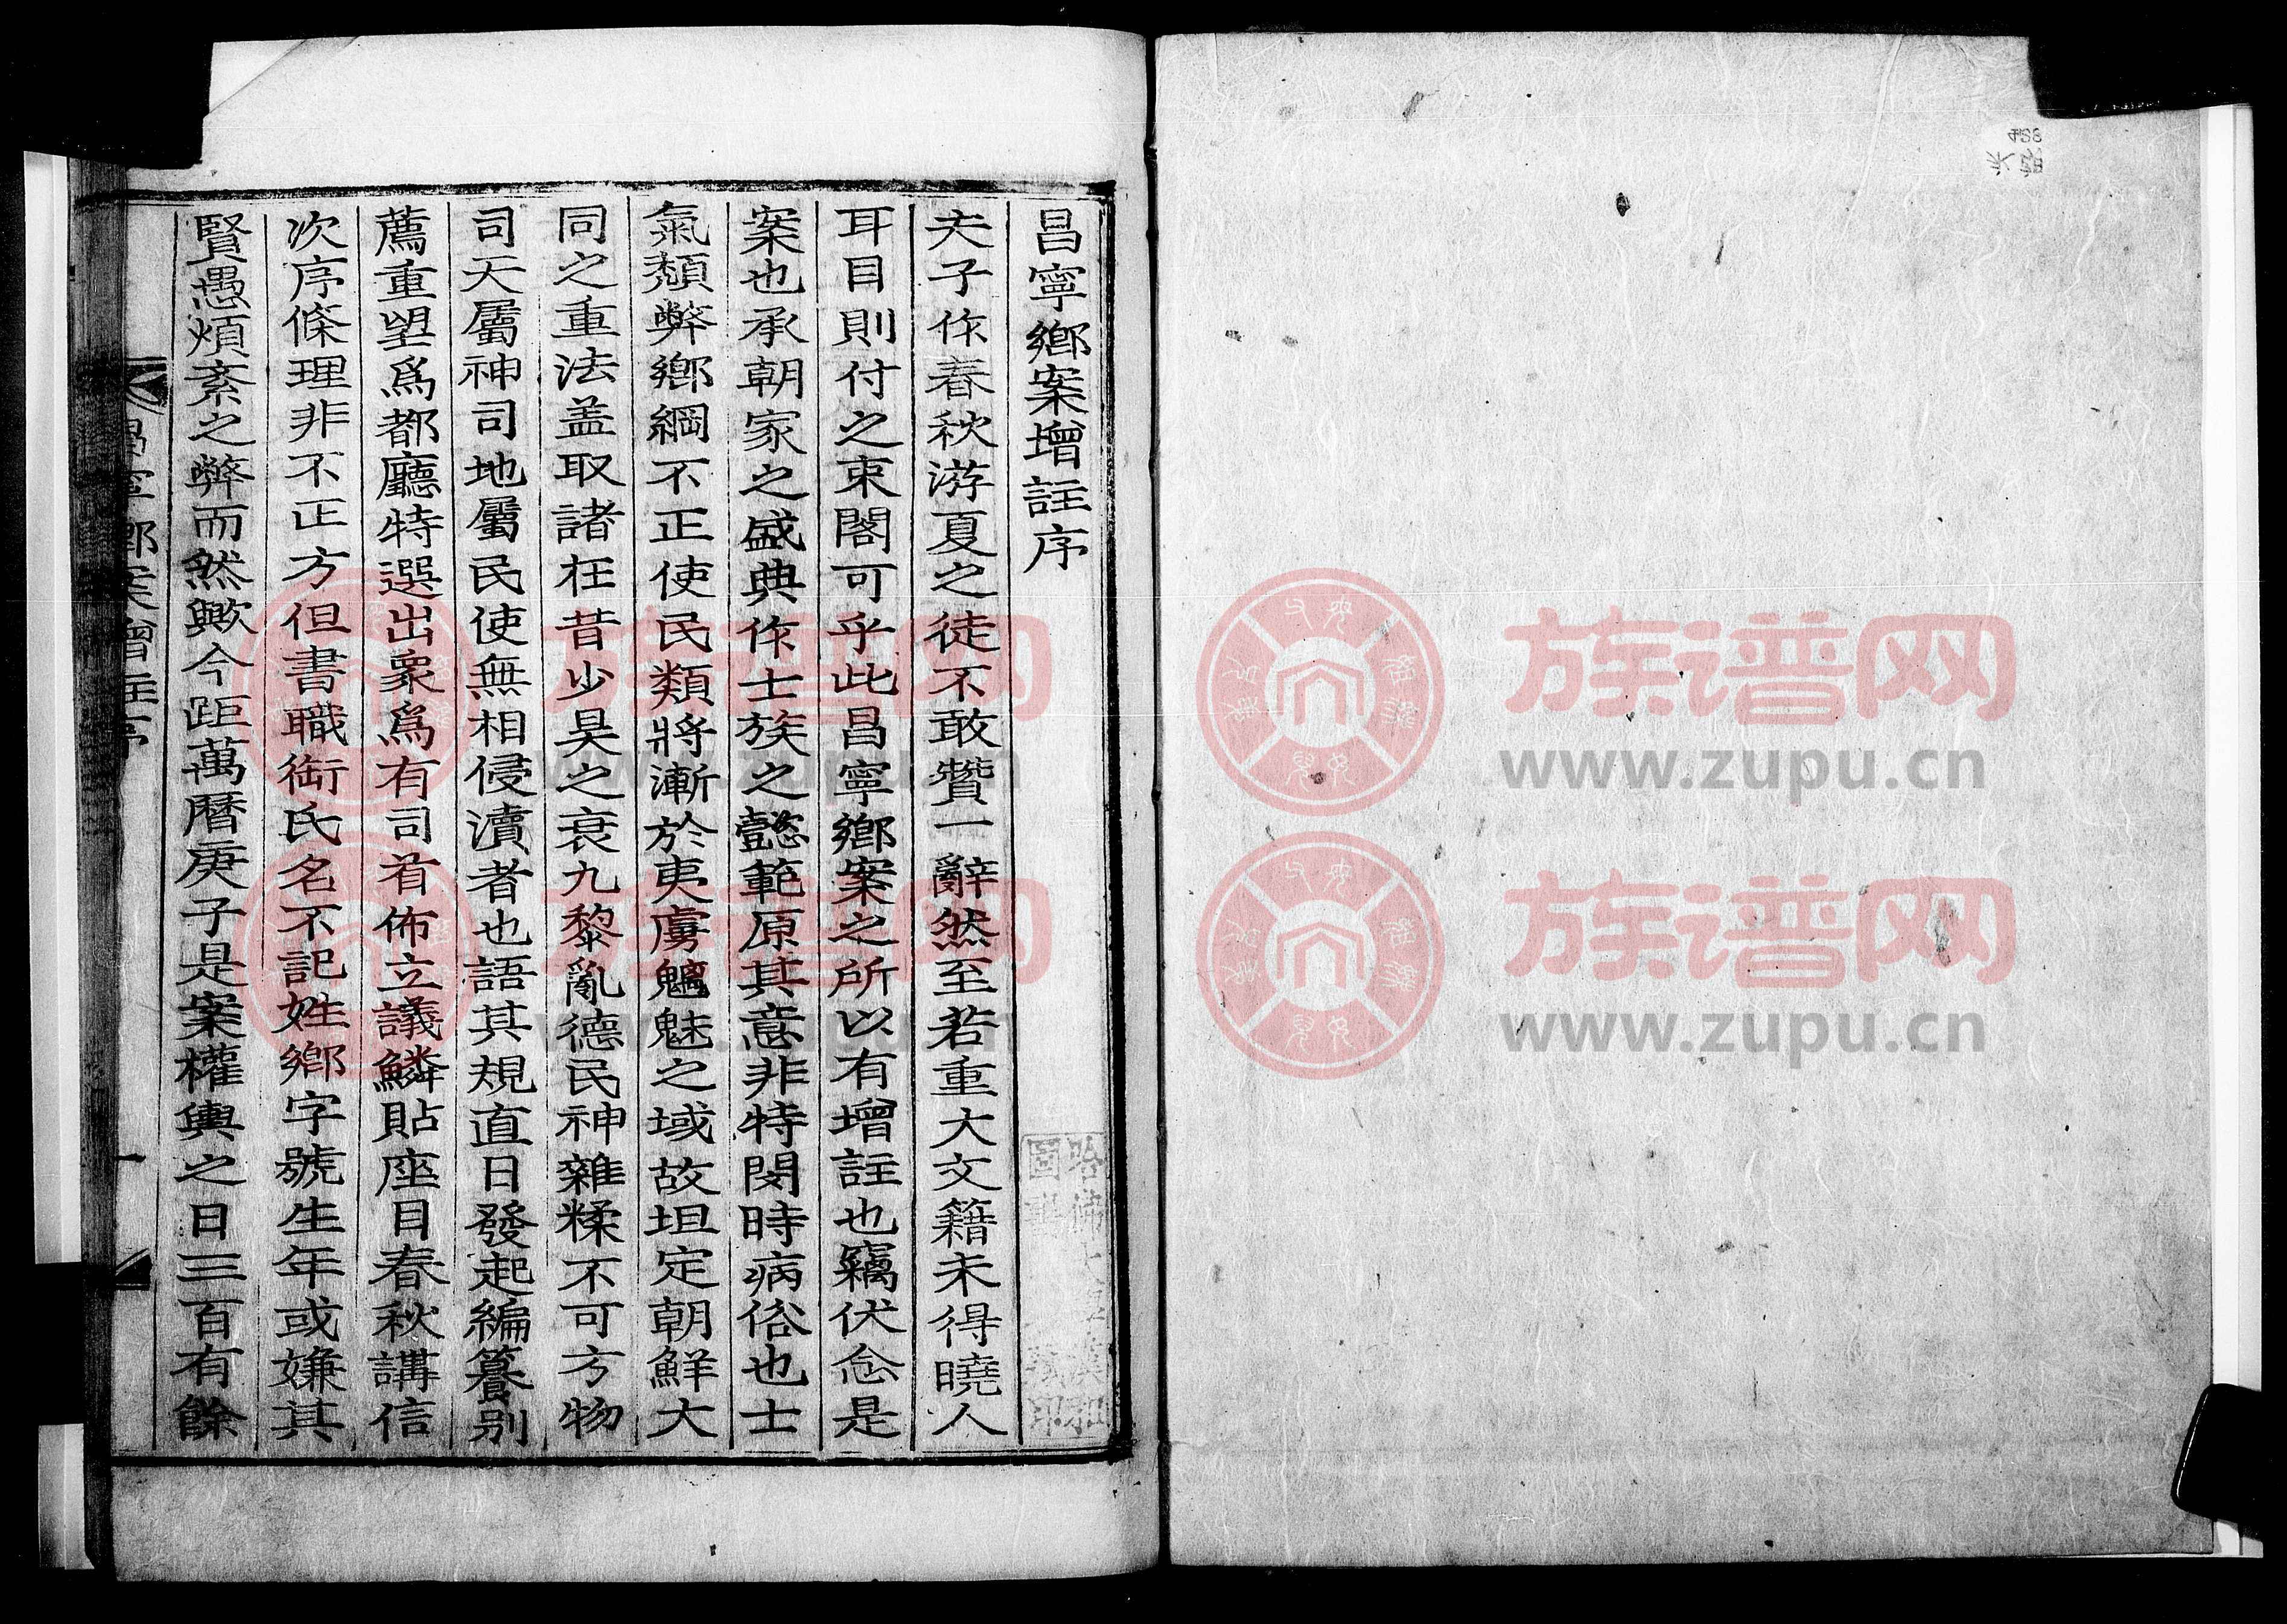 昌寧鄉案增註序
夫子作春秋游夏之徒不敢贊一辭然至若重大文籍未得曉人
耳目則付之束閣可乎此昌寧鄉案之所以有增註也竊伏念是
案也承朝家之盛典作士族之懿範原其意非特閔時病俗也士
氣頹弊鄉綱不正使民類將漸於夷虜魑魅之域故坦定朝鮮大
同之重法盖取諸枉昔少昊之衰九黎亂德民神雜糅不可方物
司天屬神司地屬民使無相侵瀆者也語其規直日發起編簒别
薦重望爲都廳特選出衆爲有司首佈立議鱗貼座目春秋講信
次序條理非不正方但書職銜氏名不記姓鄉字號生年或嫌其
賢愚煩紊之弊而然歟今距萬曆庚子是案權輿之日三百有餘
昌寧鄉案增註序
一
族谱网
www.zupu.cn
族谱网
www.zupu.cn
族谱网
www.zupu.cn
族谱网
www.zupu.cn